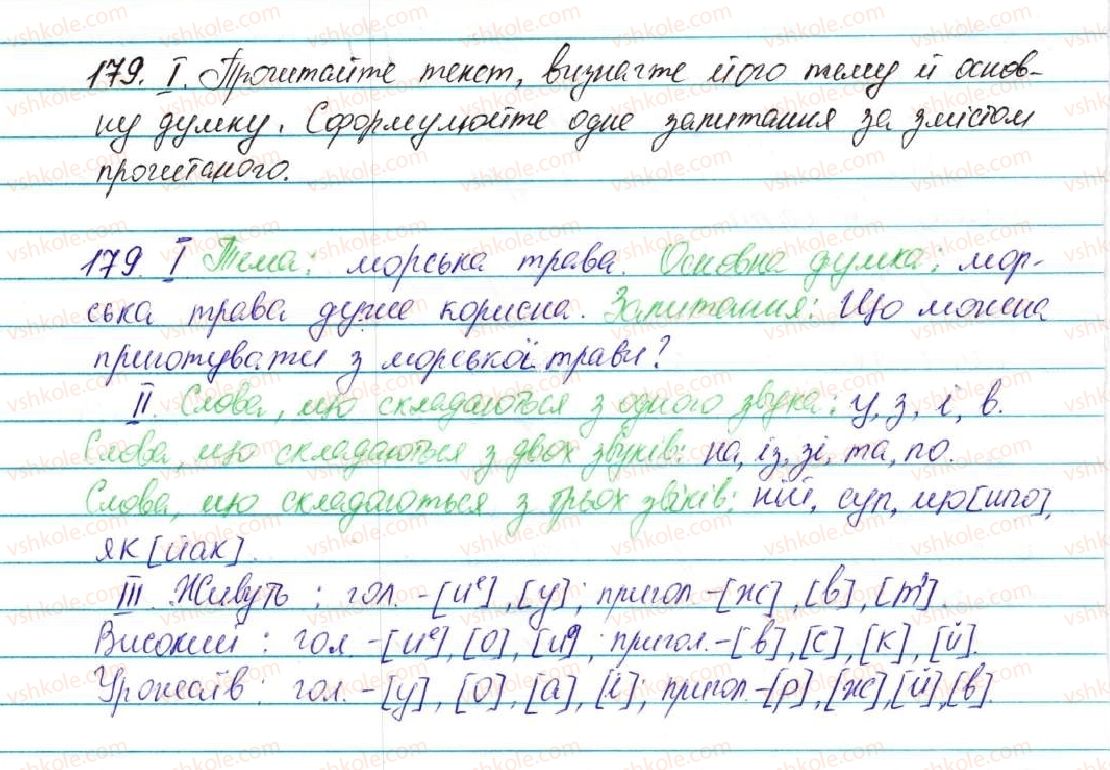 179. I. Прочитайте текст, визначте його тему й основ-
ну думку. Сформулюйте одне запитання за змістом
прочитаного.
179. I Тема: морська трава. Основна думка: мор-
ська трава дуже корисна. Запитання: Що можна
приготувати з морської трави?
II. Слова, що складаються з одного звука: у, з, і, в.
Слова, що складаються з двох звуків: на, із, зі, та, по.
Слова, що складаються з трьох звуків: ній, суп, що [шчо],
як [йак].
III. Живуть: гол. - [иᵉ], [у]; пригол. - [ж], [в], [т'].
Високий: гол. - [иᵉ], [о], [и]; пригол. - [в], [с], [к], [й].
Урожаїв: гол. - [у], [о], [а], [і]; пригол. - [р], [ж], [й], [в].